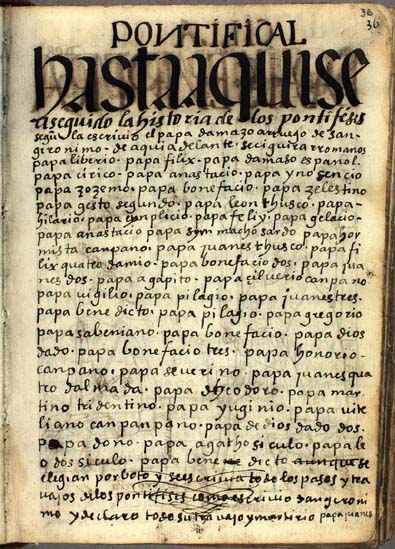 36
36
PONTIFICAL
hasta aquise
a seguido la historia de los pontifésis
segũ la escriuio el papa damazo a rruego de san
gironimo · de aqui adelante · seciguira rromanos
papa liberio · papa filix · papa damaso español
papa cirico · papa anastacio · papa ynosencio
papa zozemo · papa bonefacio · papa zelestino
papa gesto segundo · papa leon thusco · papa
hilario · papa cinplicio · papa felix · papa gelacio ·
papa anastacio papa symmacho sardo papa hor
mista canpano · papa juanes thusco · papa fi
lix quatro damio · papa bonefacio dos · papa jua
nes dos · papa agapito · papa ciluerio canpano
papa uigilio · papa pilagio · papa juanes tres ·
papa bene dicto · papa pilagio · papa gregorio
papa sabeniano · papa bonefacio · papa dios
dado · papa bonefacio tres · papa honorio ·
canpano · papa seuerino · papa juanes qua
tro dalmada · papa theodoro · papa mar
tino tridentino · papa yuginio · papa uite
liano canpanpano · papa dedios dado dos ·
papa dono · papa agatho siculo · papa le
o dos siculo · papa bene dicto aunque se
eligian por boto y se escriuio todo los pasos y tra
uajos de los pontifises como escriuio san geroni
mo y declaro todo su trauajo y martirio papa juanes